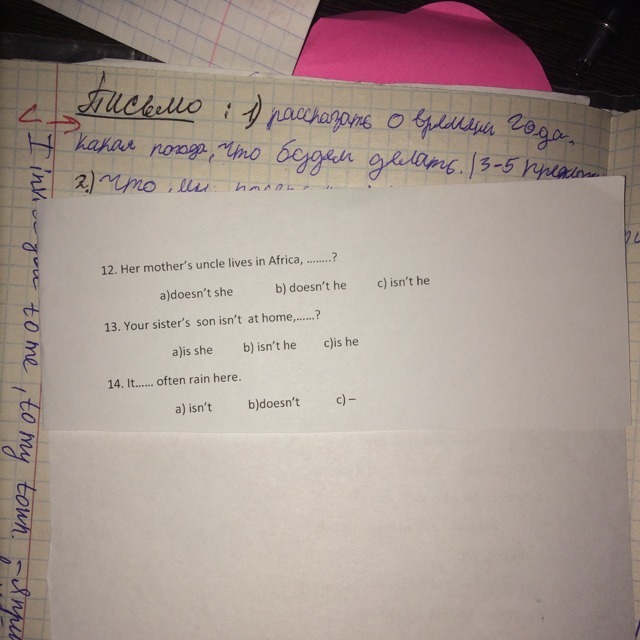 Письмо : 1) рассказать о времени года.
какая погода, что будем делать. (3-5
2.) Что
12. Her mother's uncle lives in Africa, ........?
a)doesn't she b) doesn't he c) isn't he
13. Your sister's son isn't at home,......?
a)is she b) isn't he c)is he
14. It...... often rain here.
a) isn't b)doesn't c) –
to me, to my town.